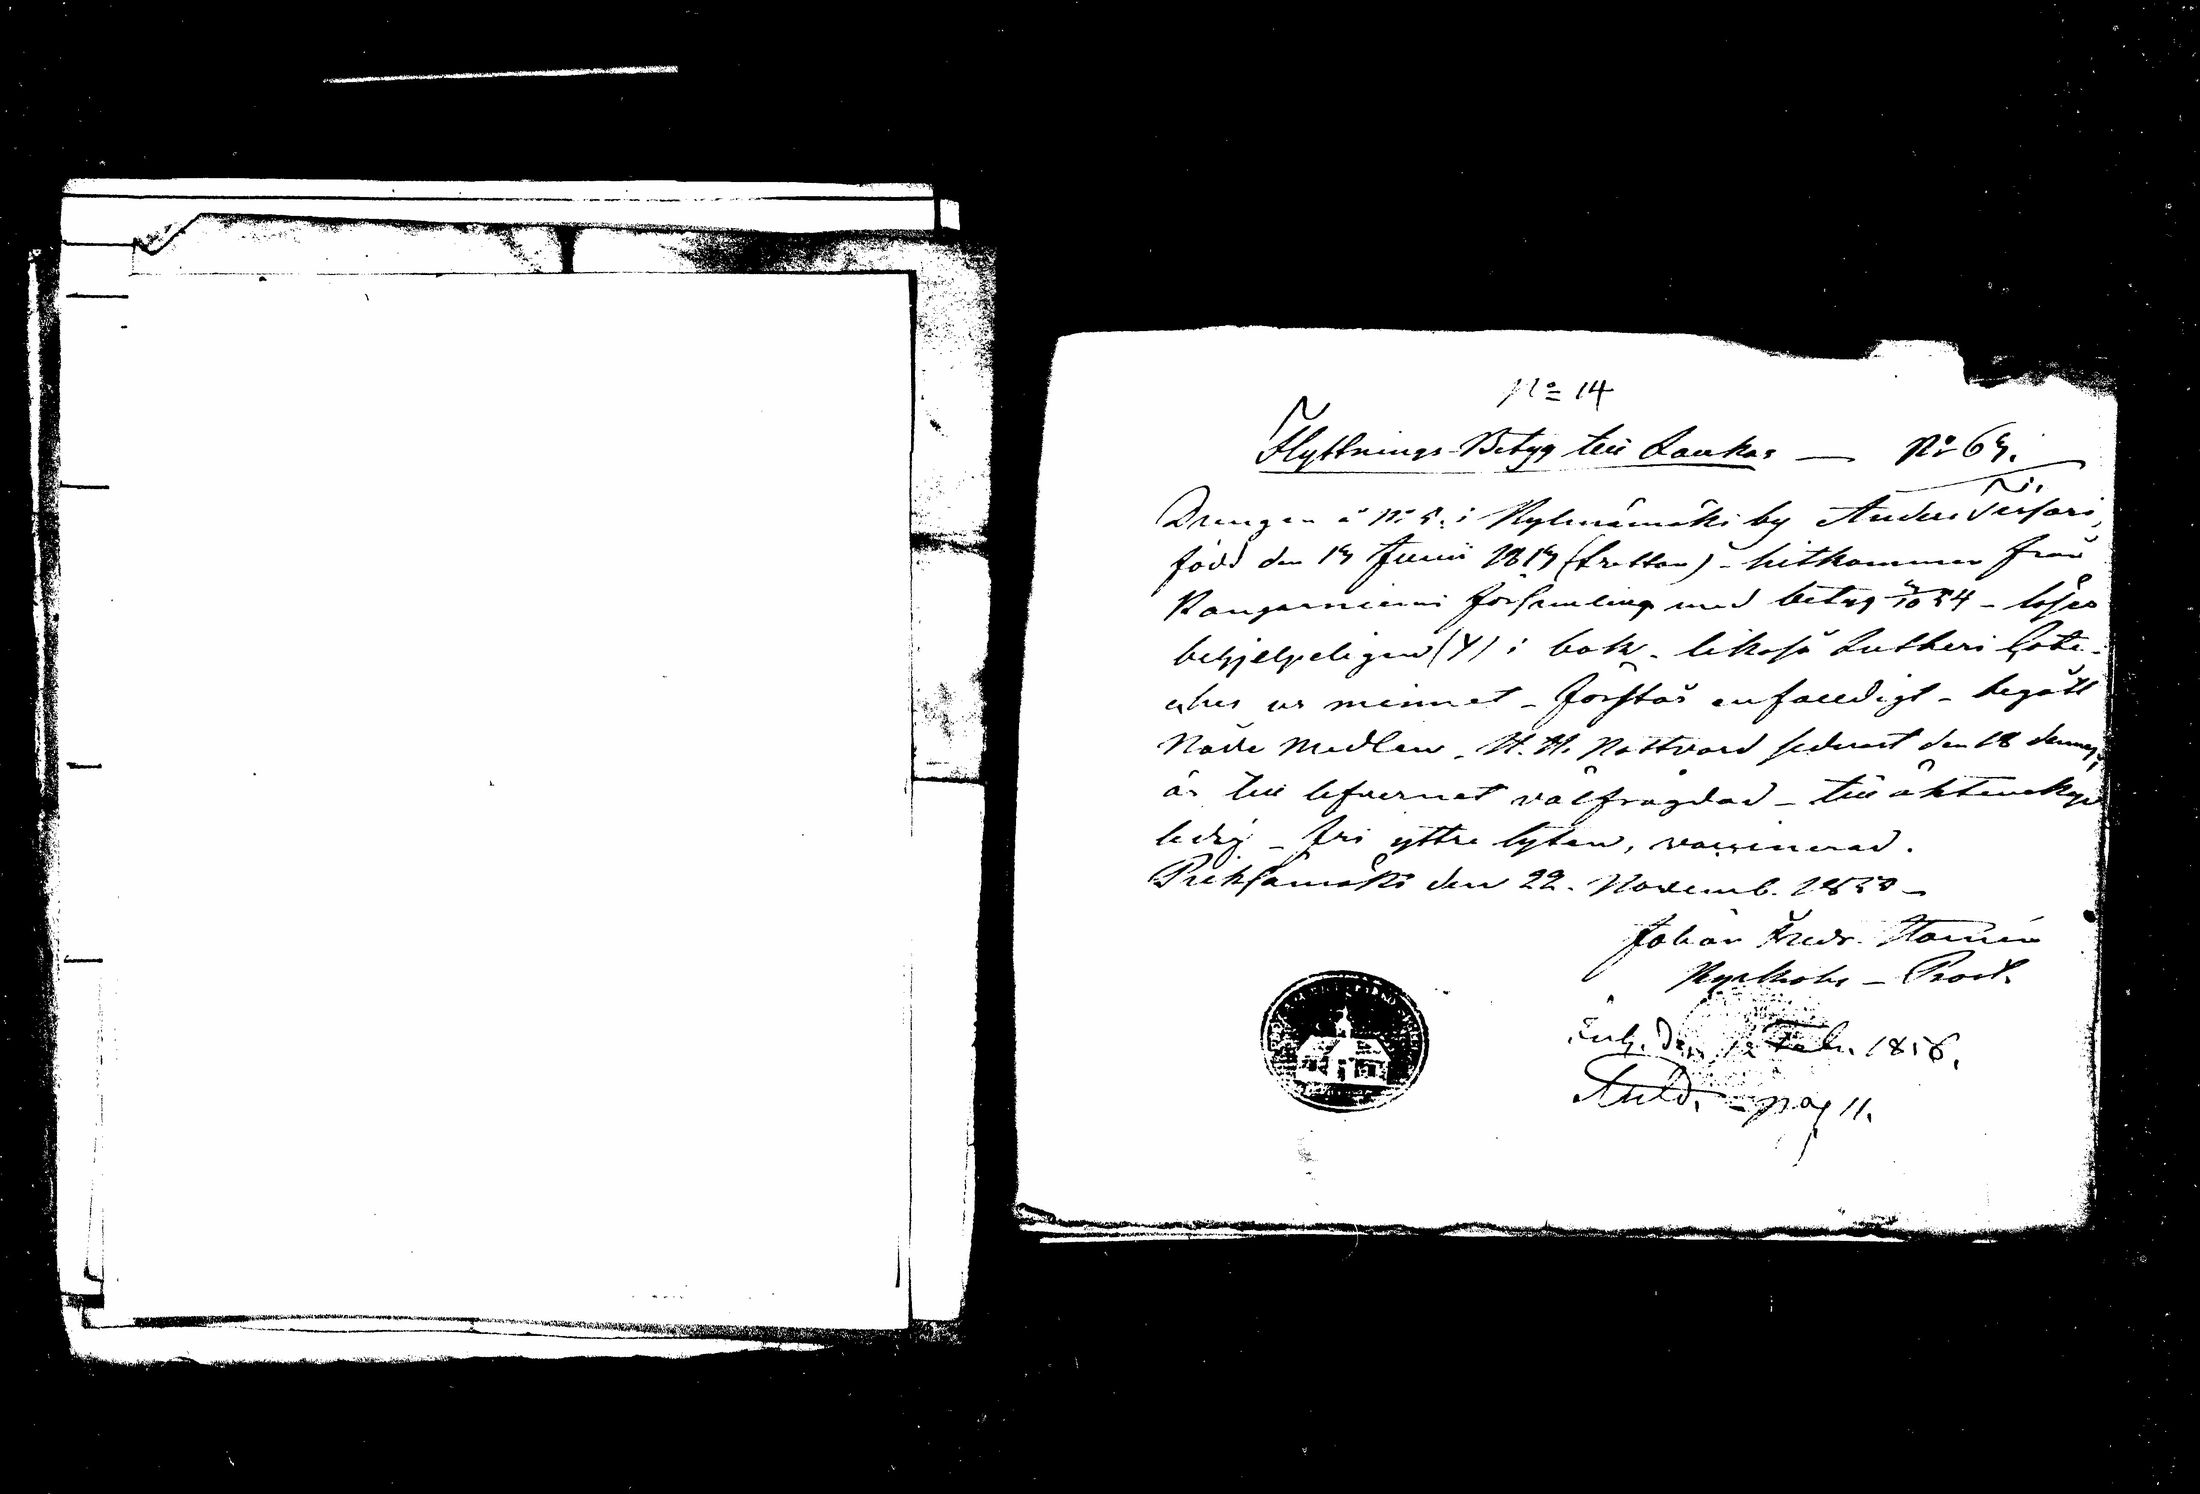 No 14
Flyttnings-Betyg till Laukas — No 69.
Drengen å No 5. i Nylmämäki by Anders
född den 19 Junii 1819 (tretton) - hitkommen från
Kangasniemi församling med betyg 54 - läser
behjelpeligen (Y) i bok - likaså Lutheri Cate-
ches ur minnet - förstår enfaldigt - begått
Nåde Medlen, H. H. Nattvard sednast den 18 dennes,
är till lefvernet välfrägdad - till äktenskap
ledig - fri yttre lyten, vaccinerad.
Pieksämäki den 22. Novemb. 185
Johan Fredr.
Kyrkoh. - Prost.
den 12 Febr. 1856.
pag 11.